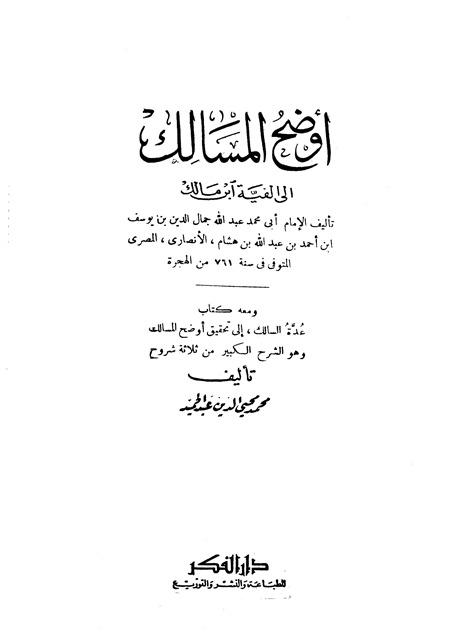 أوضح المسالك
الى ألفية ابن مالك
تأليف الإمام أبى محمد عبد الله جمال الدين بن يوسف
ابن أحمد بن عبد الله بن هشام ، الأنصارى ، المصرى
المتوفى فى سنة ٧٦١ من الهجرة
ومعه كتاب
عُدَّةُ السالك ، إلى تحقيق أوضح المسالك
وهو الشرح الكبير من ثلاثة شروح
تأليف
محمد محيي الدين عبد الحميد
دار الفكر
للطباعة والنشر والتوزيع